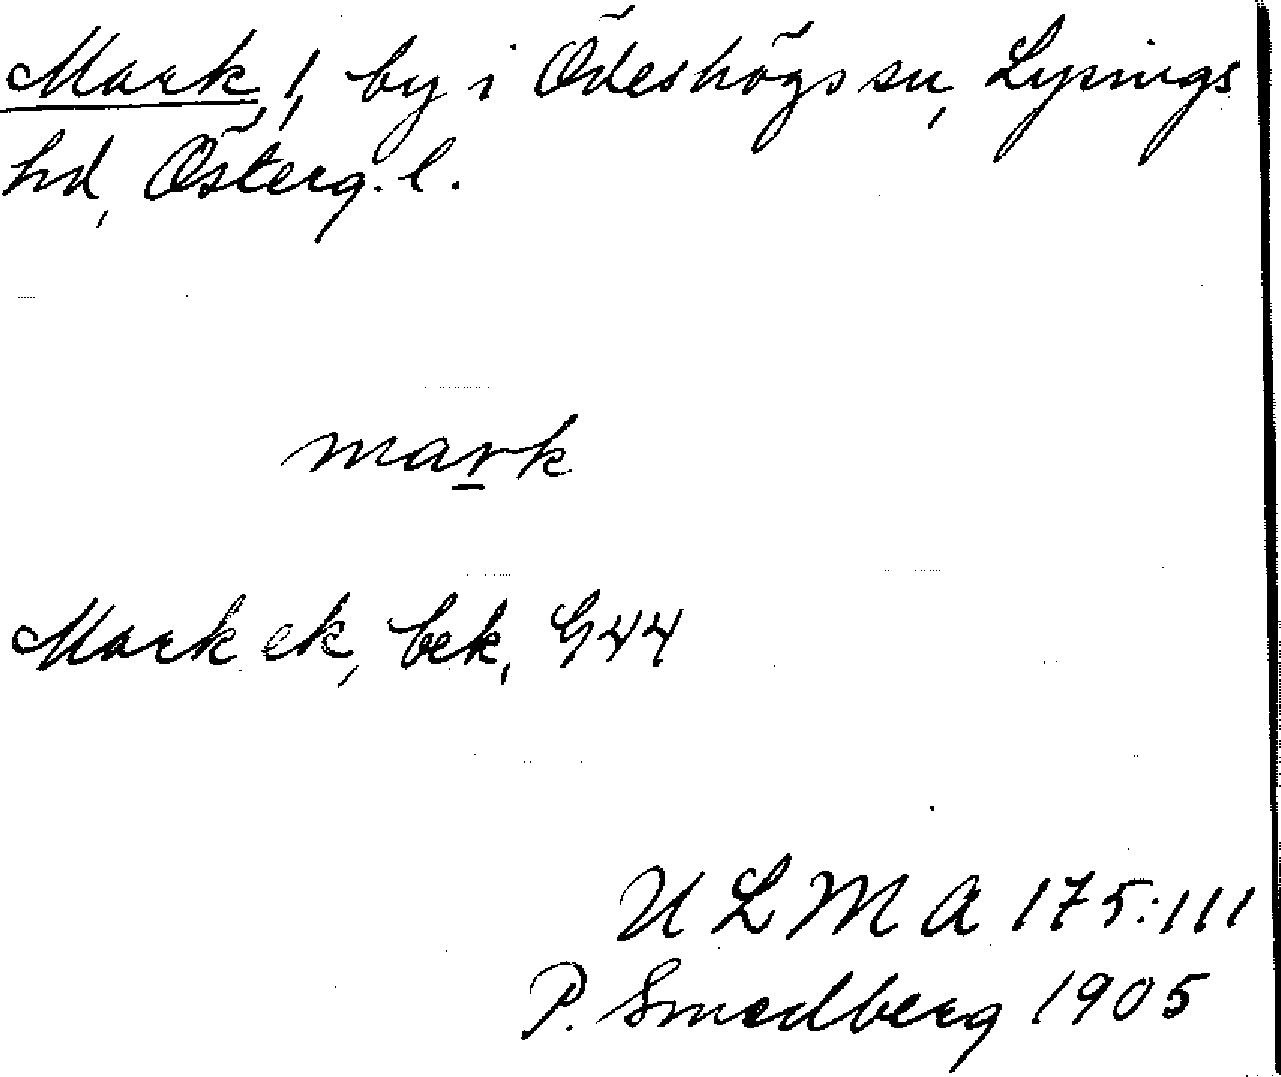 Mark, !, by i Ödeshögs sn, Lysings
hd, Österg. l.
mark
Mark ek, bek, G44
ULMA 175:111
P. Smedberg 1905